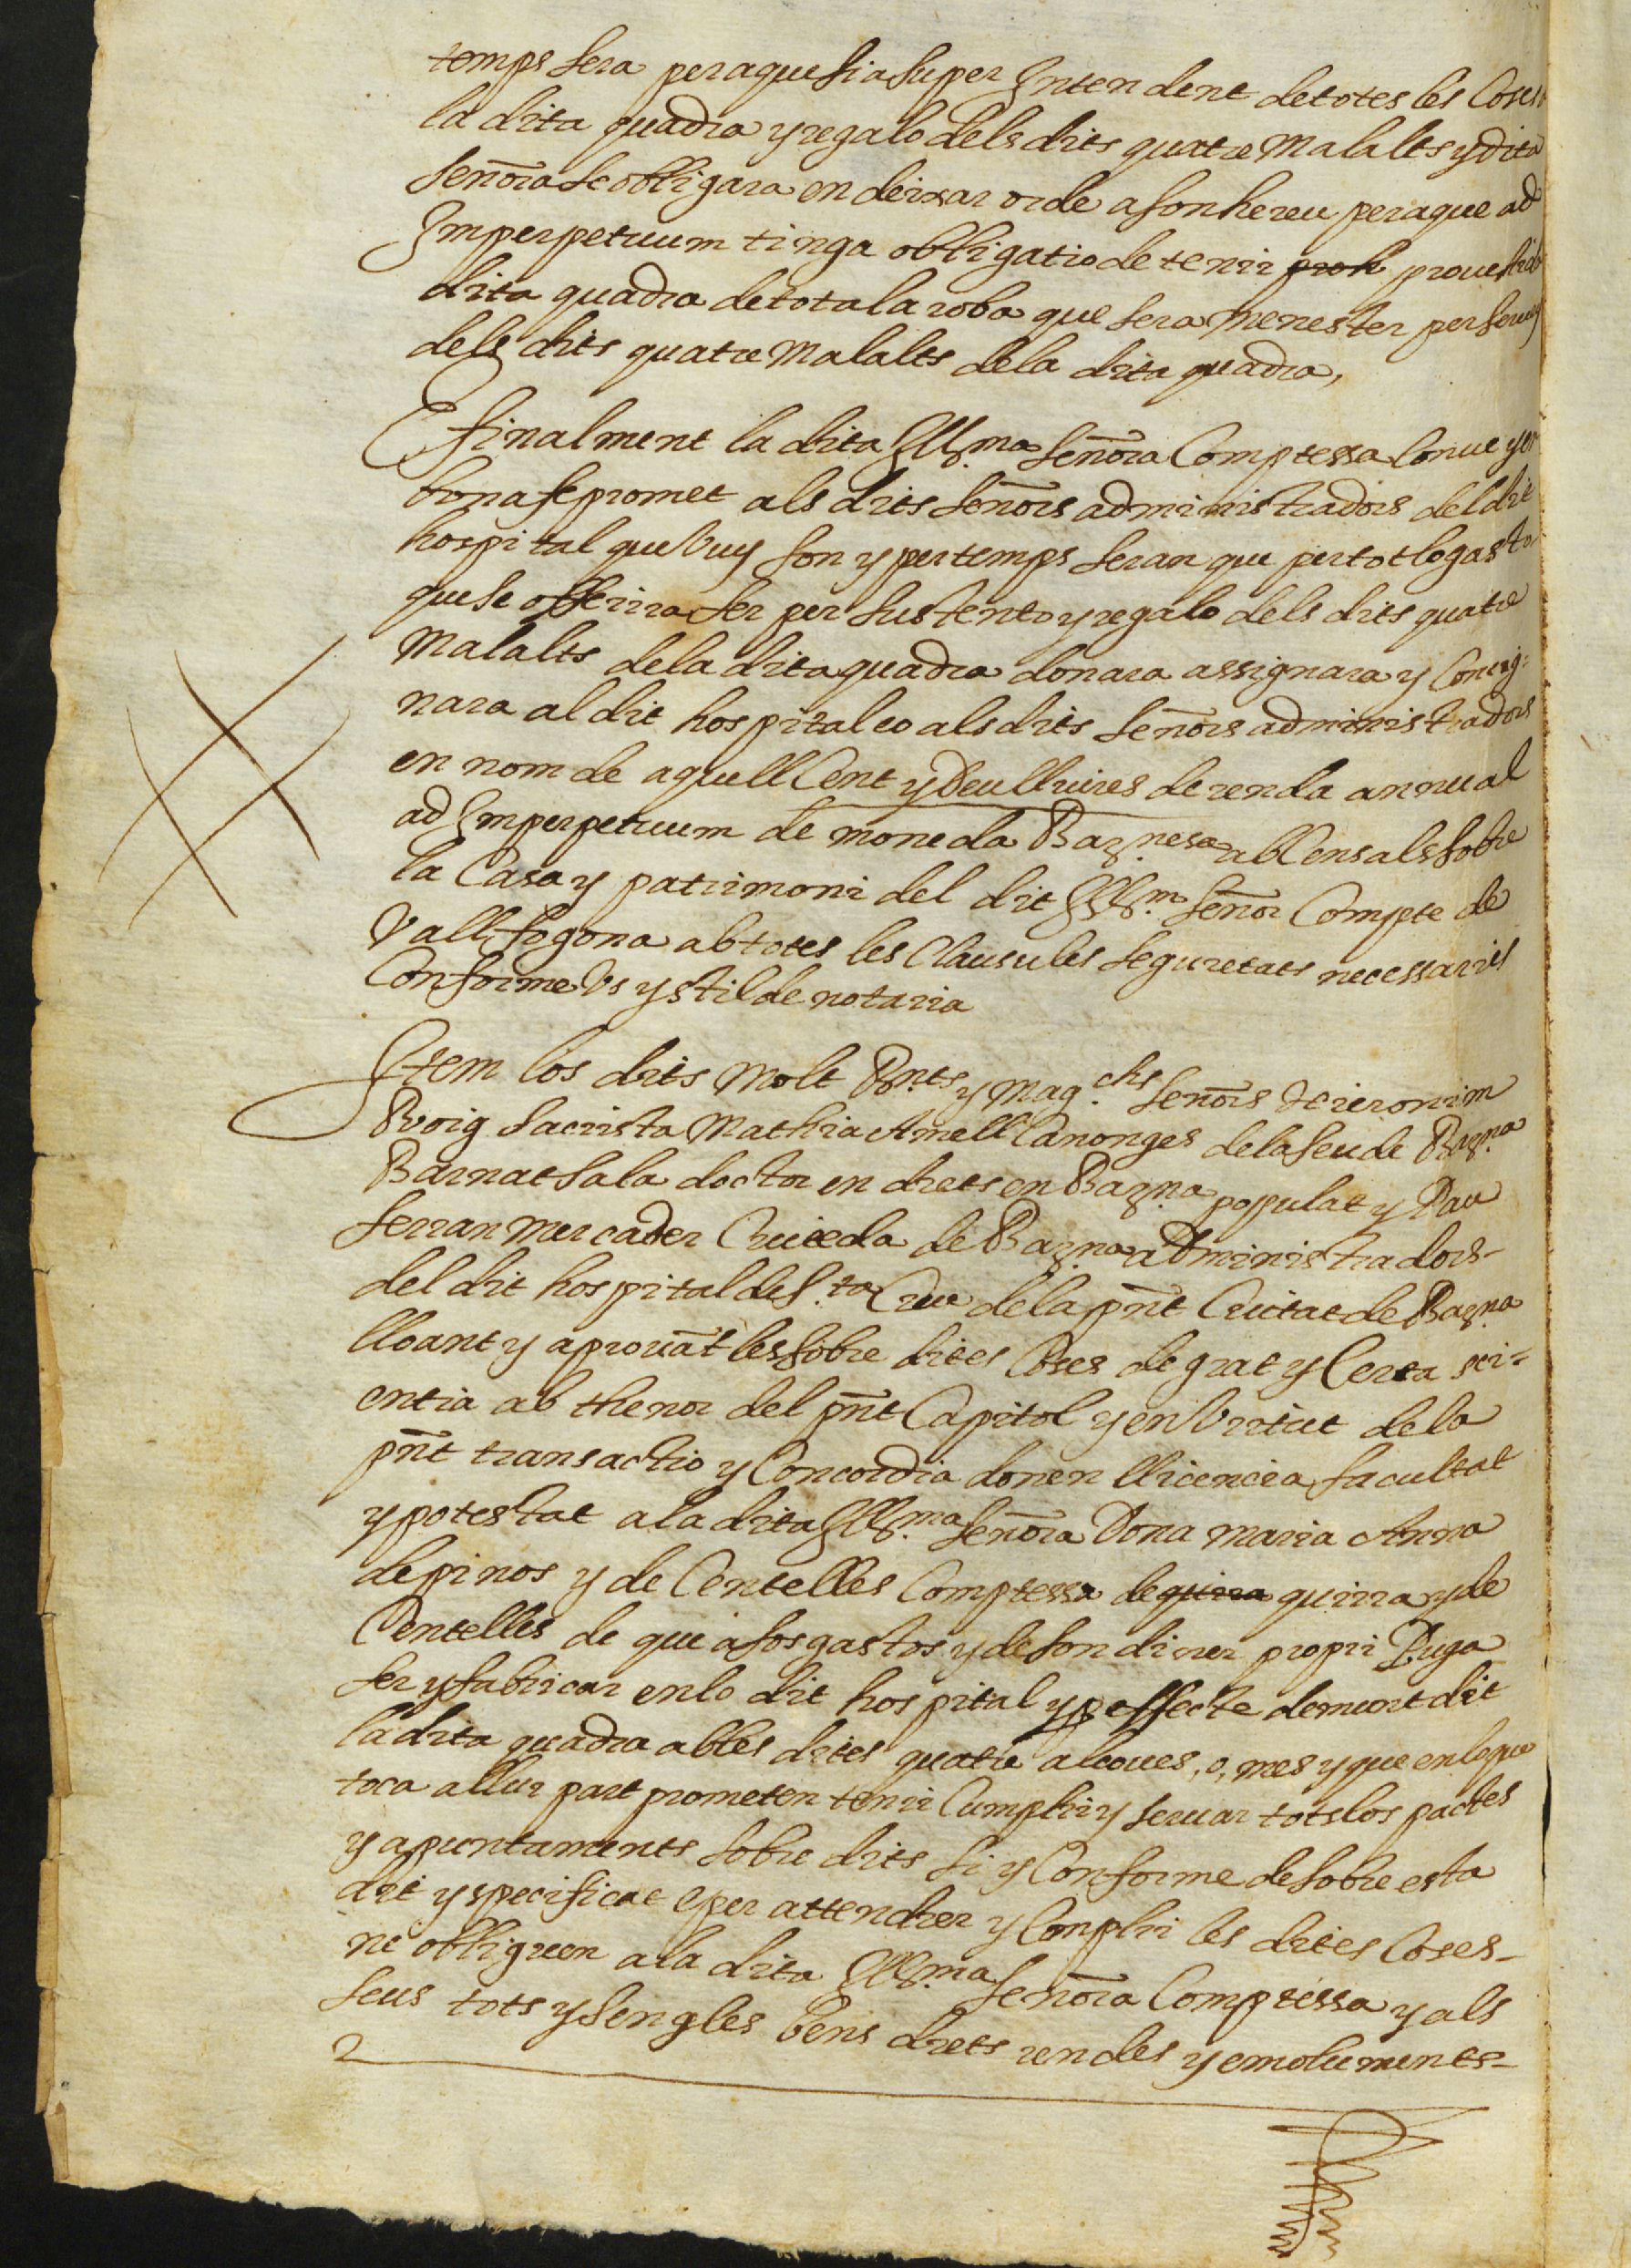 temps sera peraque sia super Intendent de totes les Coses
la dita quadra y regalo dels dits quatre Malalts y dita
señora se obligara en deixar orde a son hereu peraque ad
Imperpetuum tinga obligatio de tenir proh provehida
dita quadra de tota la roba que sera menester per servey
dels dits quatre Malalts de la dita quadra,
E finalment la dita Illma. señora Comptessa Conve y en
bona fe promet als dits señors administradors del dit
hospital que vuy son y per temps seran que per tot lo gasto
que se offerira fer per sustento y regalo dels dits quatre
Malalts de la dita quadra donara assignara y Concig=
nara al dit hospital eo als dits señors administradors
en nom de aquell Cent y Deu lliures de renda annual
ad Imperpetuum de moneda Barnesa. ab Censals sobre
la Casa y patrimoni del dit Illm. señor Compte de
Vallfogona ab totes les Clausules seguretats necessaries
Conforme us y stil de notaria
Item los dits Molt Rnts. y Magchs. señors Hieronim
Roig sacrista Mathia Amell Canonges de la seu de Barna.
Barnat Sala doctor en drets en Barna. populat y Pau
Ferran Mercader Ciuteda de Barna. administradors-
del dit hospital de Sta. Creu de la pñt Ciutat de Barna.
lloant y aprovãt les sobre dites Coses de grat y Certa sci=
entia ab thenor del pñt Capitol y en Virtut de la
pñt transactio y Concordia donen llicencia facultat
y potestat a la dita Illma. señora Dona Maria Anna
de pinos y de Centelles Comptessa de quirra quirra y de
Centelles de que a sos gastos y de son diner propri Puga
fer y fabricar en lo dit hospital y p effecte demunt dit
la dita quadra ab les dites quatre alcoves, o, mes y que en lo que
toca a llur part prometen tenir Cumplir y servar tots los pactes
y apuntaments sobre dits si y Conforme de sobre esta
dit y specificat E per attendrer y Complir les dites Coses-
ne obliguen a la dita Illma. señora Comptessa y als
seus tots y sengles bens drets rendes y emoluments-